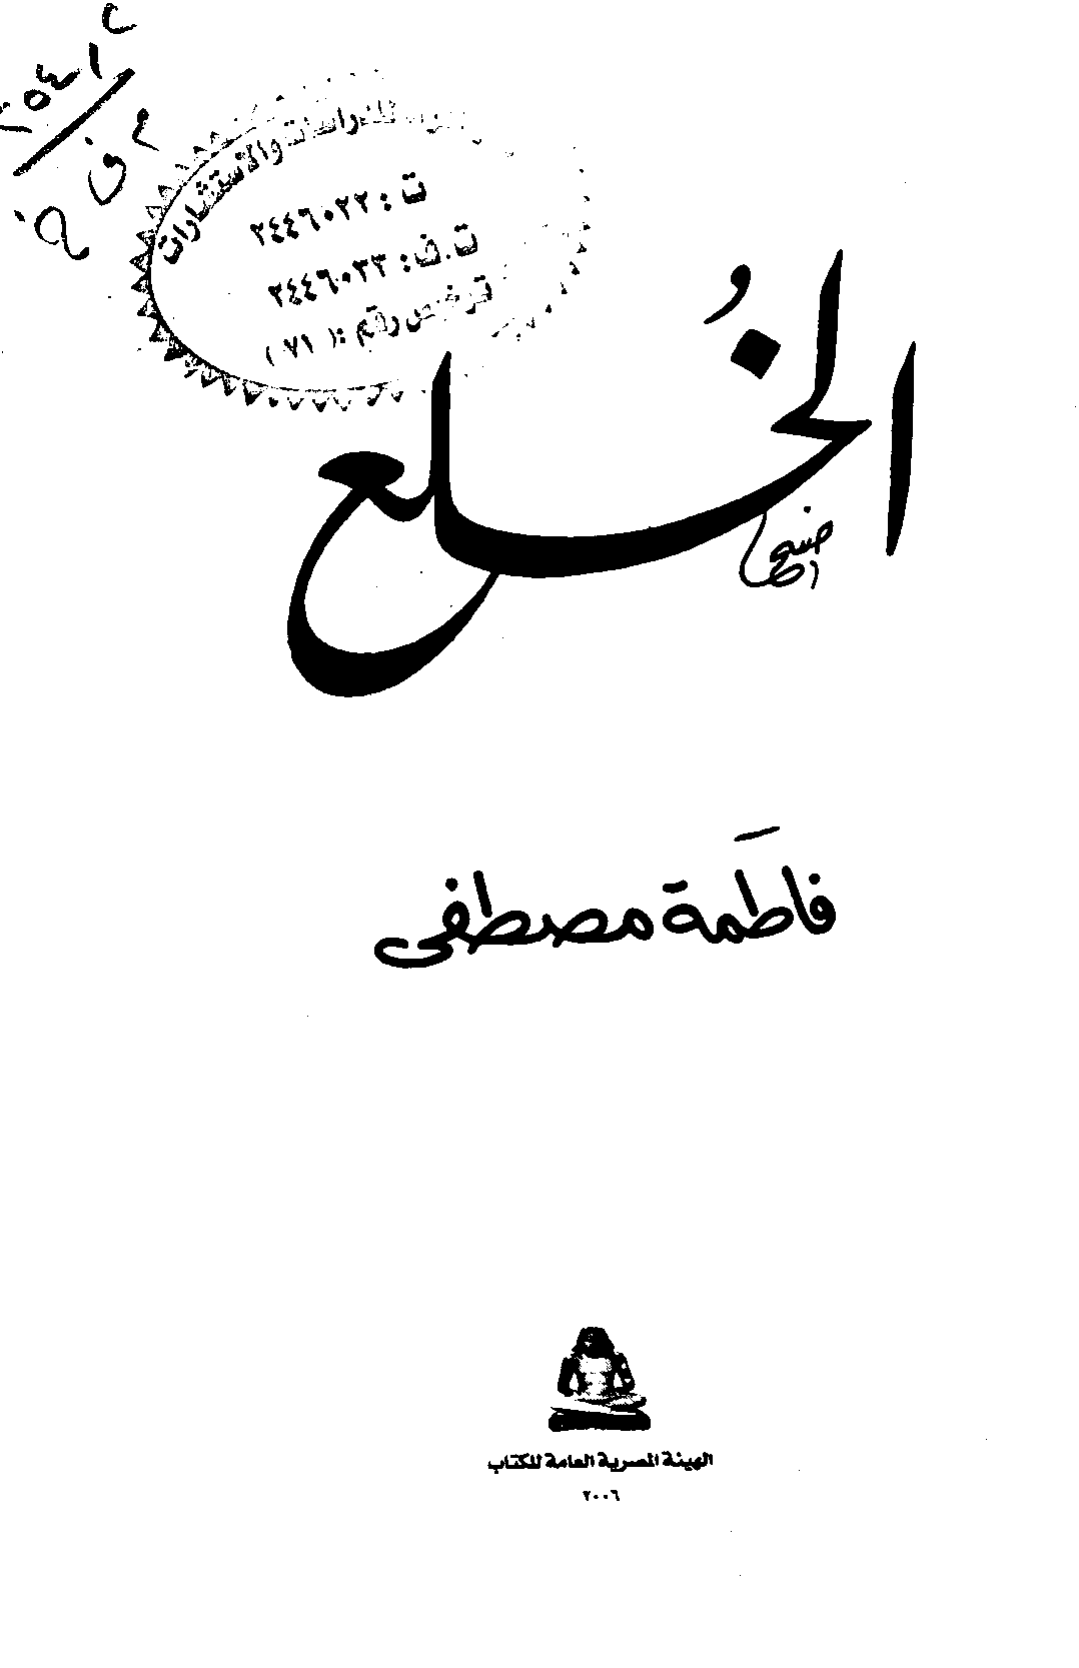 للدراسات والاستشارات
ت : ٢٤٤٦٠٢٢
ت . ف : ٢٤٤٦٠٣٣
ترخيص رقم : ( ٧١ )
الخُلع
فاطمَة مصطفى
الهيئة المصرية العامة للكتاب
٢٠٠٦